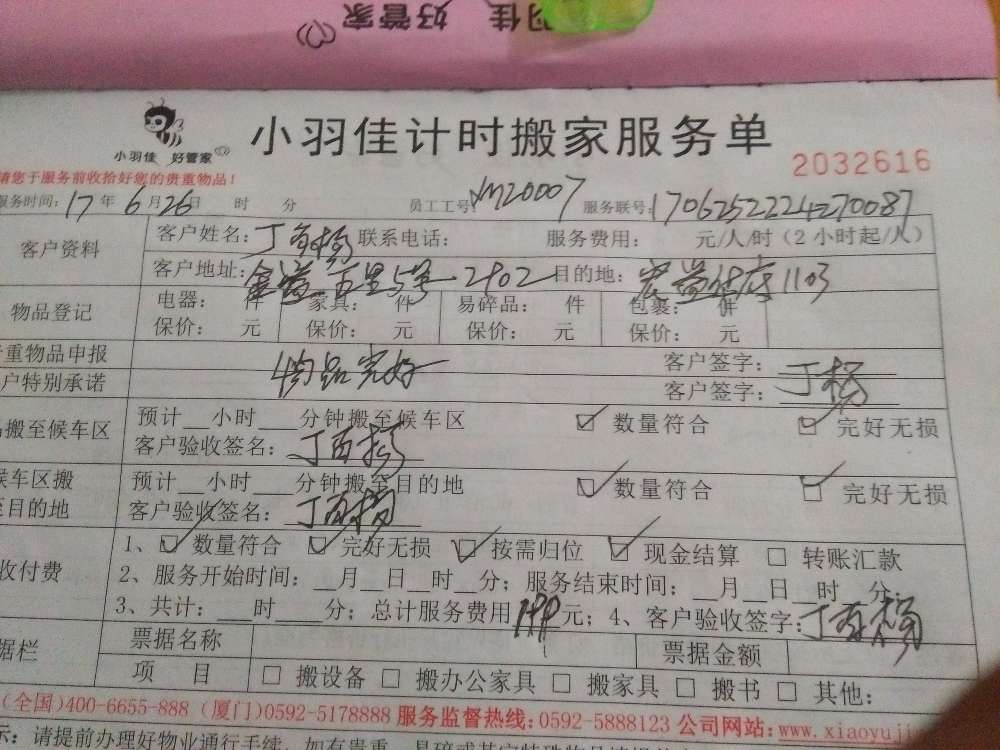 羽佳 好管家
小羽佳 好管家
小羽佳计时搬家服务单
2032616
请您于服务前收拾好您的贵重物品！
服务时间：17年6月26日 时 分 员工工号 XM20007 服务联号：1706252224270087
客户资料 客户姓名： 联系电话： 服务费用： 元/人/时（2小时起/人）
客户地址： 五里5号 2902 目的地： 1103
物品登记 电器： 件 家具： 件 易碎品： 件 包裹： 件
保价： 元 保价： 元 保价： 元 保价： 元
贵重物品申报 客户签字：
户特别承诺 物品完好 客户签字：丁杨
搬至候车区 预计__小时___分钟搬至候车区 ☑ 数量符合 ☑ 完好无损
客户验收签名：丁百杨
候车区搬至目的地 预计__小时___分钟搬至目的地 ☑ 数量符合 ☑ 完好无损
客户验收签名：丁百杨
收付费 1、☑ 数量符合 ☑ 完好无损 ☑ 按需归位 ☑ 现金结算 □ 转账汇款
2、服务开始时间：__月__日__时__分；服务结束时间：__月__日__时__分；
3、共计：___时___分；总计服务费用 元；4、客户验收签字：丁百杨
据栏 票据名称 票据金额
项 目 □ 搬设备 □ 搬办公家具 □ 搬家具 □ 搬书 □ 其他：
(全国)400-6655-888 (厦门)0592-5178888 服务监督热线：0592-5888123 公司网站：www.xiaoyuji
示：请提前办理好物业通行手续，如有贵重、易碎或其它特殊物品请提前